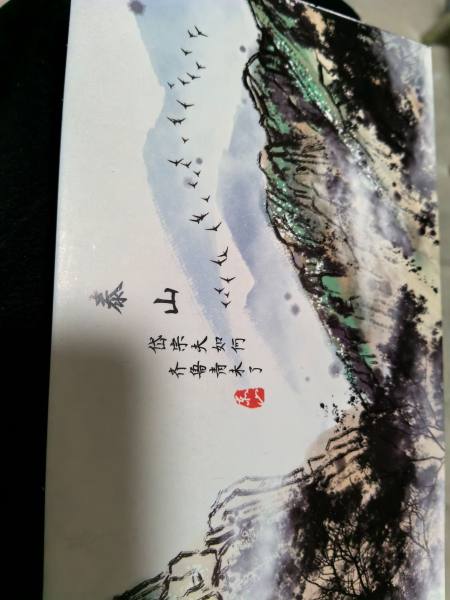 泰山
岱宗夫如何
齐鲁青未了